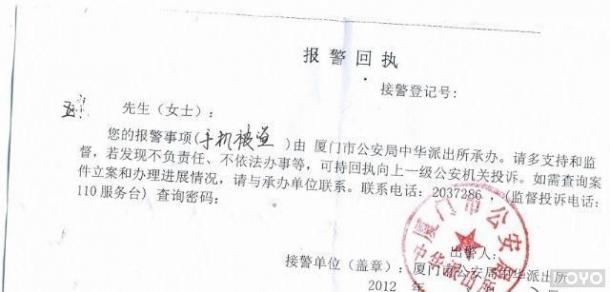 报警回执
接警登记号:
先生（女士）:
您的报警事项(手机被盗)由 厦门市公安局中华派出所承办。请多支持和监
督，若发现不负责任、不依法办事等，可持回执向上一级公安机关投诉。如需查询案
件立案和办理进展情况，请与承办单位联系。联系电话: 2037286 ，(监督投诉电话:
110 服务台) 查询密码:
出警人:
接警单位（盖章）: 厦门市公安局中华派出所
2012 年
厦门市公安局
中华派出所
YOYO